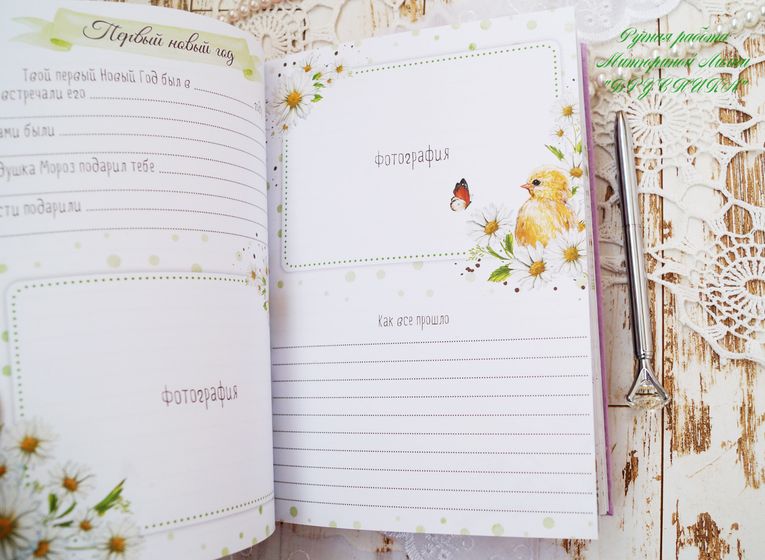 Первый новый год
Твой первый Новый Год был в
встречали его
были
Мороз подарил тебе
подарили
фотография
фотография
Как все прошло
Ручная работа